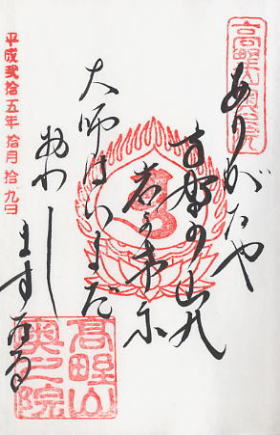 ありがたや
高野の山の
岩可希尓
大師はいまだ
おわします奈る
高野山
奥之院
平成弐拾五年拾月拾九日